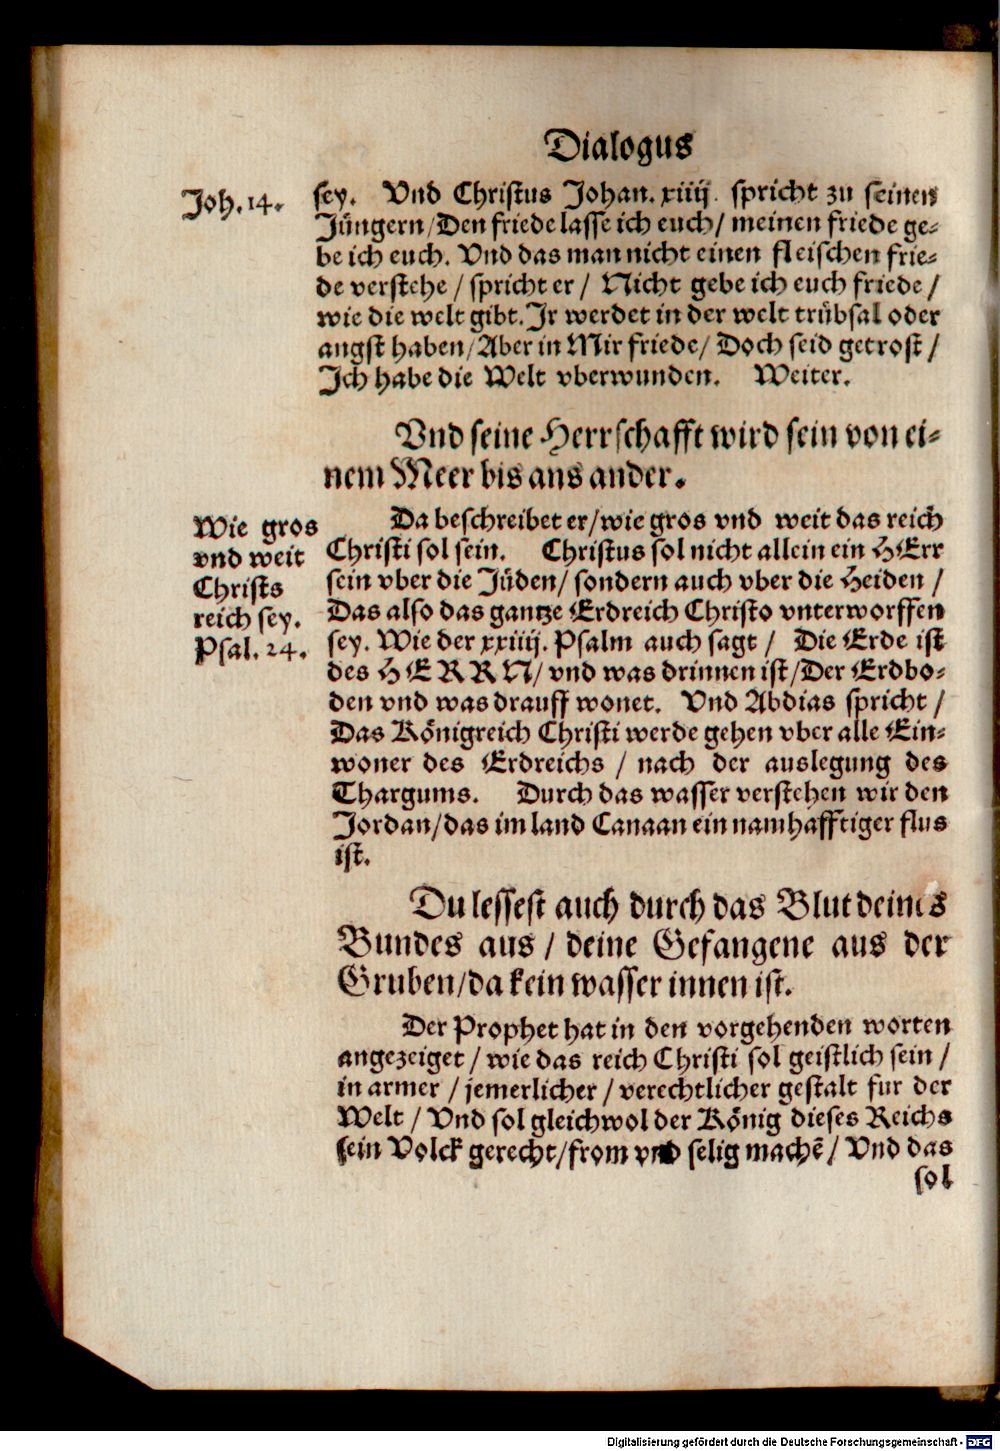 Dialogus
Joh. 14.
sey. Vnd Christus Johan. xiiij. spricht zu seinen
Jüngern/Den friede lasse ich euch/ meinen friede ge-
be ich euch. Vnd das man nicht einen fleischen frie-
de verstehe / spricht er / Nicht gebe ich euch friede /
wie die welt gibt. Ir werdet in der welt trübsal oder
angst haben/Aber in Mir friede/ Doch seid getrost /
Ich habe die Welt vberwunden. Weiter.
Vnd seine Herrschafft wird sein von ei-
nem Meer bis ans ander.
Wie gros
vnd weit
Christs
reich sey.
Psal. 24.
Da beschreibet er/wie gros vnd weit das reich
Christi sol sein. Christus sol nicht allein ein HErr
sein vber die Jüden/ sondern auch vber die Heiden /
Das also das gantze Erdreich Christo vnterworffen
sey. Wie der xxiiij. Psalm auch sagt / Die Erde ist
des HERRN/ vnd was drinnen ist/Der Erdbo-
den vnd was drauff wonet. Vnd Abdias spricht /
Das Königreich Christi werde gehen vber alle Ein-
woner des Erdreichs / nach der auslegung des
Thargums. Durch das wasser verstehen wir den
Jordan/das im land Canaan ein namhafftiger flus
ist.
Du lessest auch durch das Blut deines
Bundes aus / deine Gefangene aus der
Gruben/da kein wasser innen ist.
Der Prophet hat in den vorgehenden worten
angezeiget / wie das reich Christi sol geistlich sein /
in armer / jemerlicher / verechtlicher gestalt fur der
Welt / Vnd sol gleichwol der König dieses Reichs
sein Volck gerecht/from vnd selig machē/ Vnd das
sol
Digitalisierung gefördert durch die Deutsche Forschungsgemeinschaft - DFG